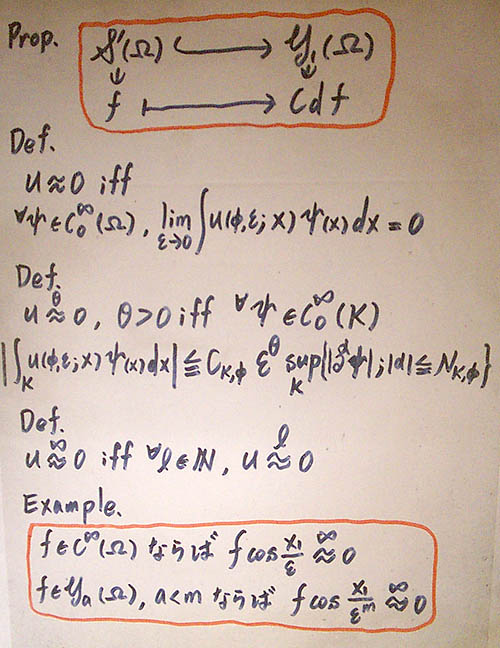 Prop. 𝒮'(Ω) ↪ 𝒴₁(Ω)
f ↦ Cd f
Def.
u ≈ 0 iff
∀ψ ∈ C₀^∞(Ω), lim_{ε→0} ∫ u(φ,ε;x) ψ(x) dx = 0
Def.
u ≈^θ 0, θ>0 iff ∀ψ ∈ C₀^∞(K)
|∫_K u(φ,ε;x) ψ(x) dx| ≦ C_{K,φ} ε^θ sup_K {|∂^α ψ|; |α| ≦ N_{K,φ}}
Def.
u ≈^∞ 0 iff ∀l ∈ ℕ, u ≈^l 0
Example.
f ∈ C^∞(Ω) ならば f cos x₁/ε ≈^∞ 0
f ∈ 𝒴ₐ(Ω), a<m ならば f cos x₁/ε^m ≈^∞ 0